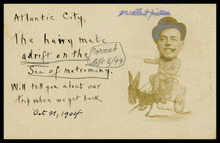 Atlantic City,
excellent picture
The hairy mate
adrift on the
Sea of matrimony.
Will tell you about our
trip when we get back
Oct 21, 1904